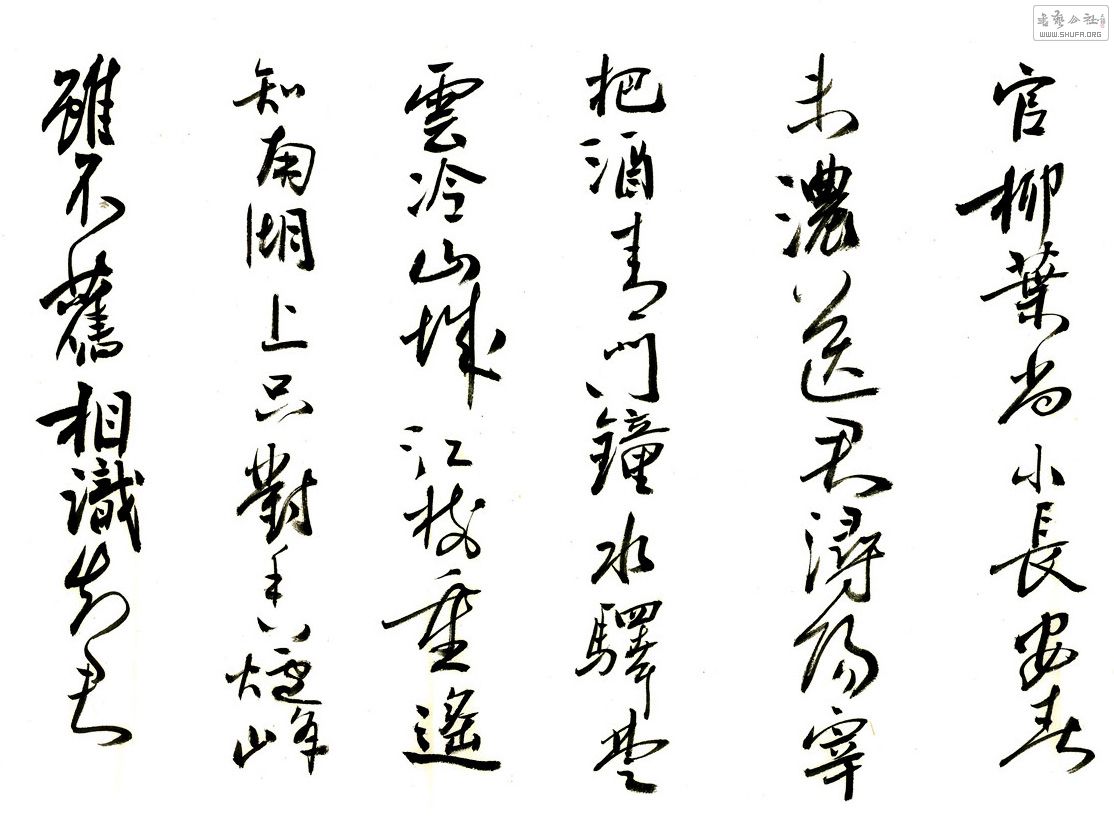 官柳葉尚小長安春
未濃送君潯陽宰
把酒青門鐘水驛楚
雲冷山城江樹重遙
知南湖上只對香爐峰
雖不舊相識知君
書藝公社
WWW.SHUFA.ORG